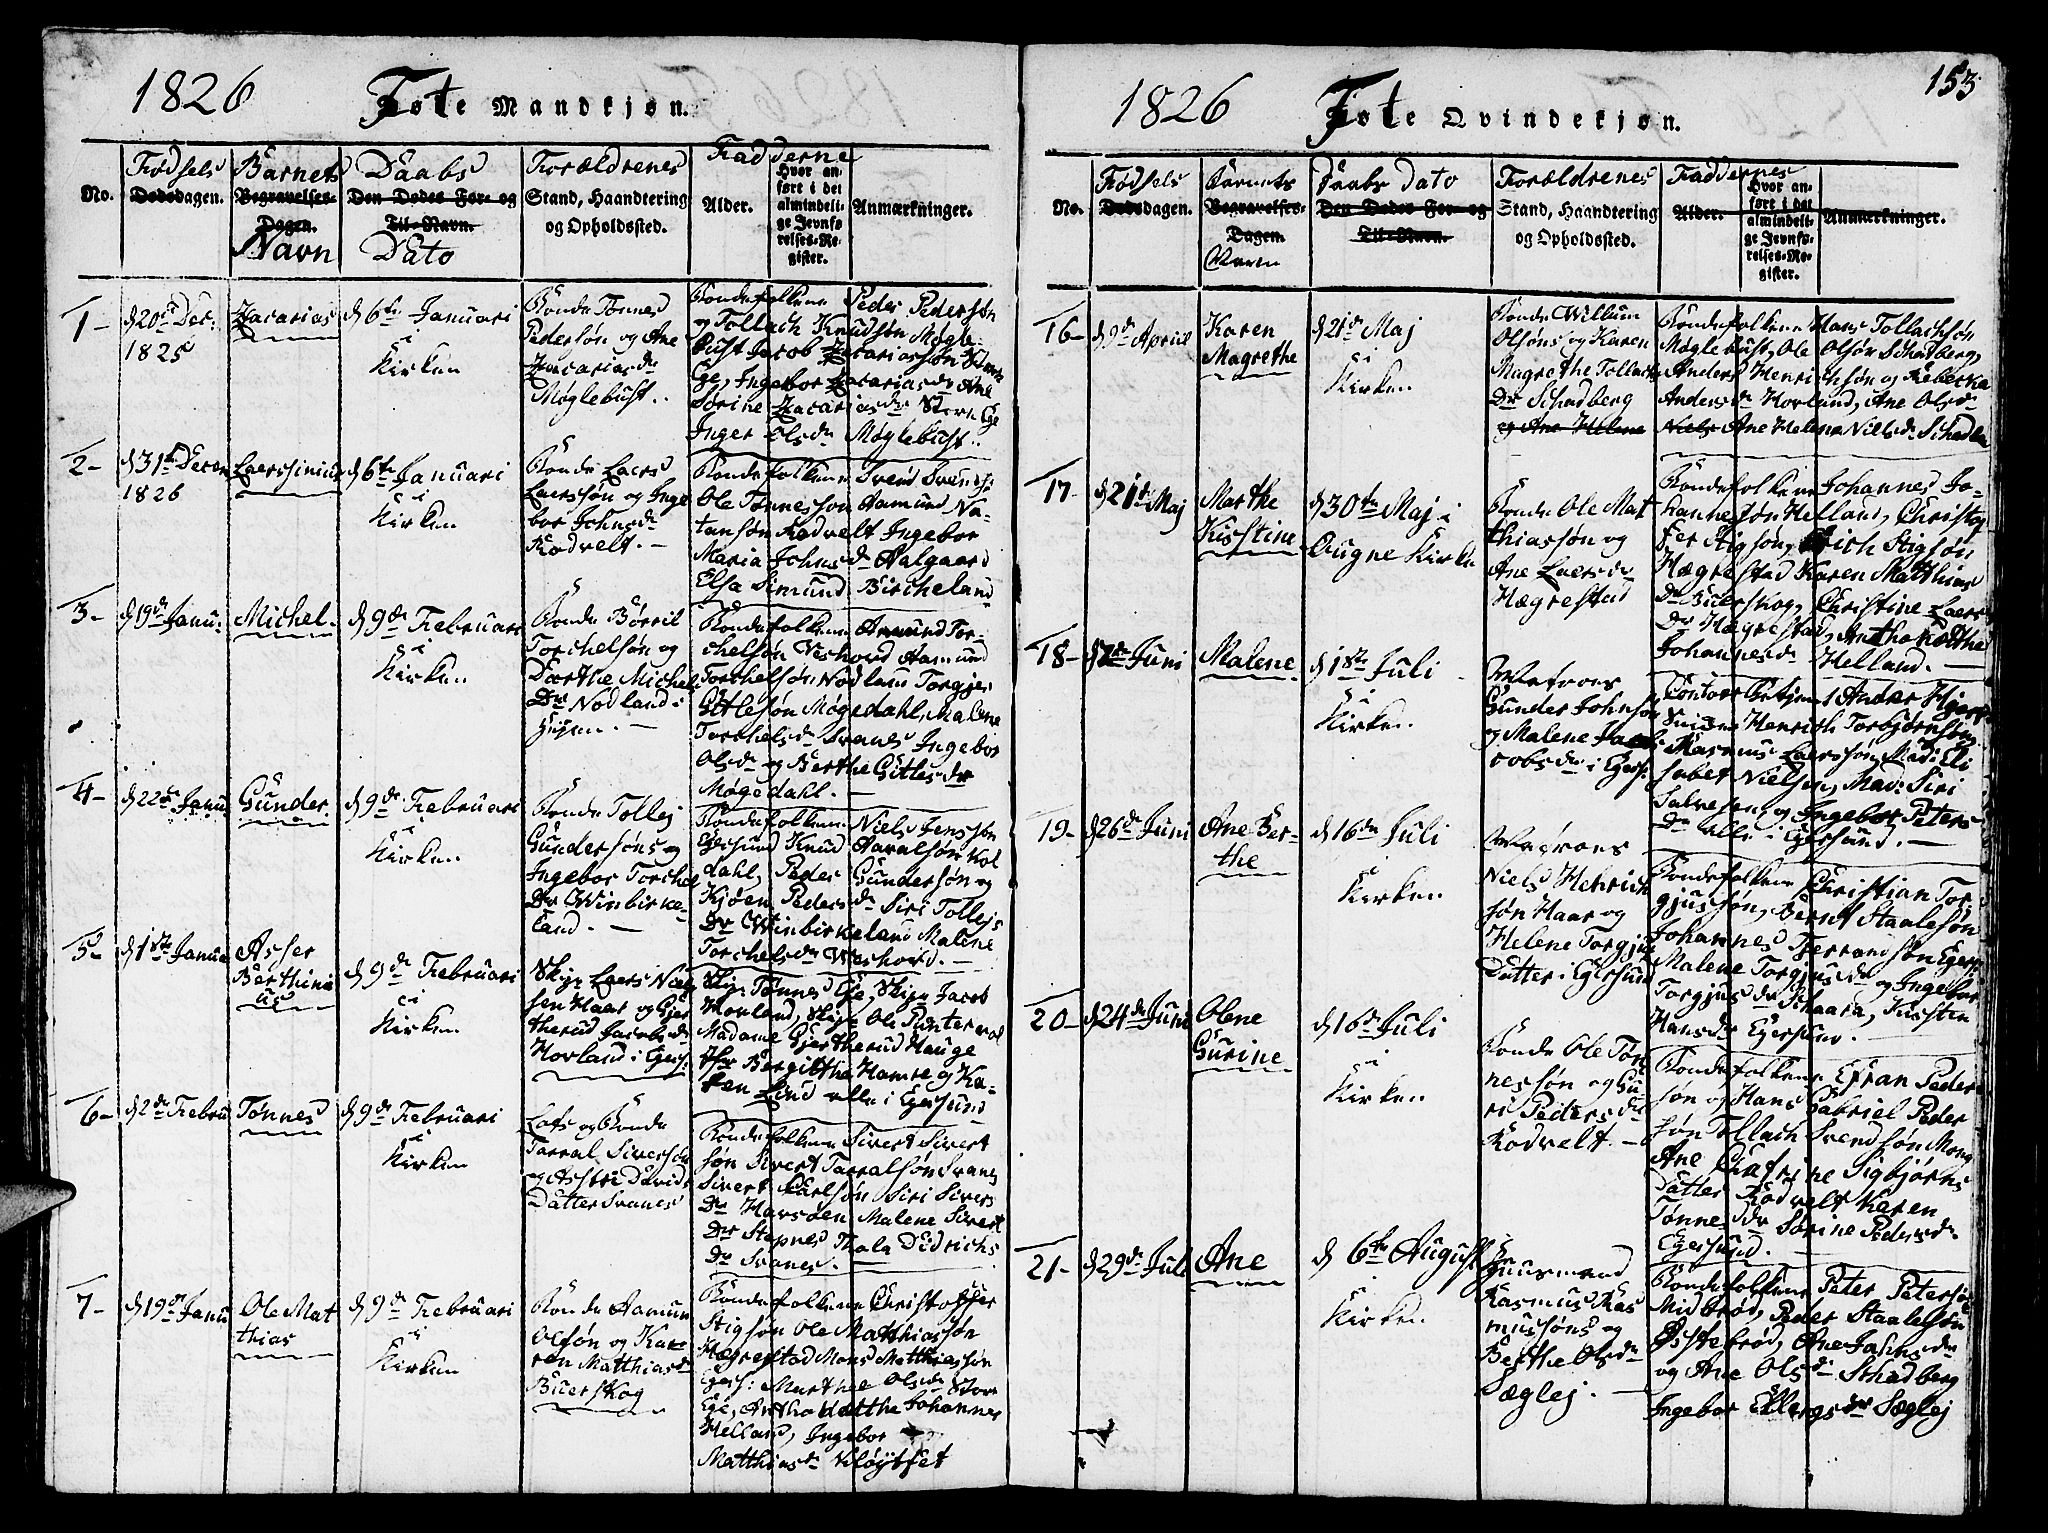 1826 Føte Mandkjøn.
No.
Fødsels
Dødsdagen.
Barnets
Begravelses-
Dagen.
Navn
Daabs
Den Dødes For- og
Til-Navn.
Dato
Forældrenes
Stand, Haandtering
og Opholdssted.
Fadderne
Alder.
Hvor an-
ført i det
almindeli-
ge Jevnfø-
relses-Re-
gister.
Anmærkninger.
1-
d 20de Dec:
1825
Zacarias
d 6te Januari
i
Kirken
Bonde Tønnes
Pedersøn og Ane
Zacariasdr
Møglebust.
Bondefolkene Peder Pedersøn
og Tollach Knudsøn Møgle-
bust Jacob Zacariassøn Store
Ege, Ingebor Zacariasdr Ane
Sørine Zacariasdr Store Ege
Inger Olsdr Møglebust.
2-
d 31te Decem
1826
Laerssinius
d 6te Januari
i
Kirken
Bonde Laers
Laerssøn og Inge
bor Johnsdr
Rodvelt.
Bondefolkene Svend Svends:
Ole Tønnesson Aamund Na-
tansøn Rodvelt Ingebor
Maria Johnsdr Aalgaard
Elsa Simund Bircheland
3-
d 19de Janu:
Michel
d 9de Februari
i
Kirken
Bonde Børril
Torchelsøn og
Dorthe Michel
Dr Nodland i
Bondefolkene Amund Tor-
chelsøn Veshovd Aamund
Torchelsøn Nodland Torgjer
Gitlesøn Møgedahl, Malene
Torchelsdr Svanes Ingebor
Olsdr og Berthe Gitlesdr
Møgedahl.
4-
d 22de Janu
Gunder
d 9de Februari
i
Kirken
Bonde Tollej
Gundersøns og
Ingebor Torchel
Dr Winbirke-
land.
Bondefolkene Niels Jenssøn
Egersund Knud Aavalsøn Kol
dahl, Peder Gundersøn og
Kjøen Pedersdr Siri Tollejs
Dr Winbirkeland Malene
Torchelsdr Veshovd.
5-
d 1ste Janua
Asser
Berthini
us
d 9de Februari
i
Kirken
Skip: Laers Niel
sen Haar og Gjer
therud Jacobsdr
Hovland i Egers:
Skip: Tønnes Ege, Skip: Jacob
Hovland, Skip: Ole Puntervol
Madame Gjertherud Hauge
Jfr Bergitthe Hamre og Ka-
ren Lund alle i Egersund
6-
d 2de Febru
Tønnes
d 9de Februari
i
Kirken
Lots og Bonde
Tarral Siversøn
og Astri Davids
Datter Svanes
Bondefolkene Sivert Sivert
søn Sivert Tarralsøn Svanes
Sivert Karlsøn Siri Sivers
Dr Havsøen Malene Sivert
Dr Stapnes Thala Didrichs
Dr Svanes.
7-
d 19de Janu
Ole Mat
thias
d 9de Februari
i
Kirken
Bonde Aamun
Olsøn og Kar-
ren Matthiasdr
Buerskog
Bondefolkene Christoffer
Stigsøn Ole Matthiassøn
Hægrestad Mons Matthiassøn
Egers: Marthe Olsdr Store
Ege, Antho Kathe Johannes
Helland, Ingebor
Matthiasdr Kløytfet
1826 Føte Qvindekjøn.
153
No.
Fødsels
Dødsdagen.
Barnets
Begravelses-
Dagen.
Navn
Daabs Dato
Den Dødes For- og
Til-Navn.
Forældrenes
Stand, Haandtering
og Opholdssted.
Faddernes
Alder.
Hvor an-
ført i det
almindeli-
ge Jevnfø-
relses-Re-
gister.
Anmærkninger.
16-
d 9de April
Karen
Magrethe
d 21de Maj
i
Kirken
Bonde Willum
Olsøns og Karen
Magrethe Tollachs
Dr Schadberg
og Ane Helene
Bondefolkene Hans Tollachsøn
Møglebust, Ole Olsøn Schadberg,
Anders Henrichsøn og Rebecka
Andersdr Hovland, Ane Olsdr
Niels Ane Helene Nielsdr Schadbe
17-
d 21de Maj
Marthe
Kistine
d 30te Maj i
Ougne Kirke
Bonde Ole Mat
thiassøn og
Ane Laersdr
Hægrestad
Bondefolkene Johannes Jo-
hannessøn Helland, Christof
fer Stigsøn, Erich Stigsøn
Hægrestad Karen Matthias
Dr Buerskog, Christine Laers
Dr Hægrestad, Antho Kathe
Johannesdr Helland.
18-
d 7de Juni
Malene
d 1ste Juli
i
Kirken
Matros
Gunder Johnsøn
og Malene Ja-
cobsdr i Egers:
Contoir Betjent Ander Hjers
Henrich Torbjørnsøn,
Rasmus Laerssøn, Mad: Eli
sabet Nielsen, Mad: Siri
Salvesen og Ingebor Peters
Dr alle i Egersund.
19-
d 26de Juni
Ane Ber-
the
d 16de Juli
i
Kirken
Matros
Niels Henrich
søn Haar og
Helene Torgjus
Datter i Egersund
Bondefolkene Christian Tor
gjussøn, Bernt Staalesøn
Johannes Ferrandsøn Egers
Malene Torgjusdr og Ingebor
Torgjusdr Schaara, Kirsten
Hansdr Egersund.
20-
d 24de Juni
Olene
Gurine
d 16de Juli
i
Kirken
Bonde Ole Tøn
nessøn og Gu
ri Pedersdr
Rodvelt.
Bondefolkene Efran Peder
søn og Hans Gabriel Peder
søn Tollach Svendsøn Mong
Ane Chatrine Sigbjørns
Datter Rodvelt Karen
Tønnesdr Sørine Pedersdr
Egersund.
21-
d 29de Juli
Ane
d 6te August
i
Kirken
Huusmand
Rasmus Ras
mussøns og
Berthe Olsdr
Sæglej.
Bondefolkene Peter Petersøn
Midbrød, Peder Staalesøn
Østebrød, Ane Jahnsdr
og Ane Olsdr Schadberg
Ingebor Ellingsdr Sæglej